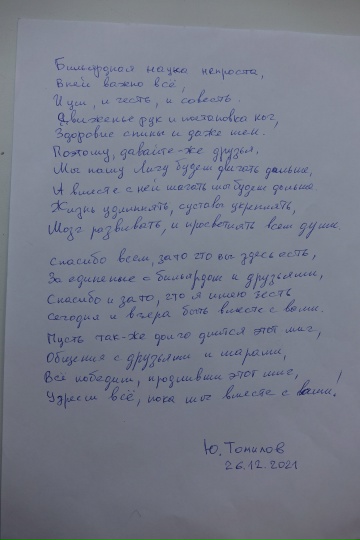 Бильярдная наука непроста,
В ней важно всё,
И ум, и честь, и совесть.
Движенье рук и постановка ног,
Здоровие спины и даже шеи.
Поэтому, давайте-же друзья.
Мы нашу Лигу будем двигать дальше,
И вместе с ней шагать мы будем дальше
Жизнь удлиннять, суставы укреплять,
Мозг развивать, и просветлять всем души.
Спасибо всем, за то что вы здесь есть,
За единенье с бильярдом и друзьями,
Спасибо и за то, что я имею честь
Сегодня и вчера быть вместе с вами.
Пусть так-же долго длится этот миг,
Общения с друзьями и шарами,
Все победим, продливши этот миг,
всё, пока мы вместе с вами!
Ю. Томилов
26.12.2021